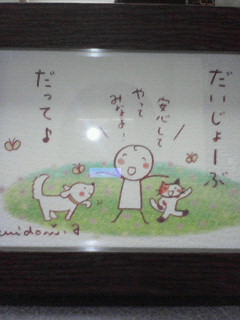 だいじょーぶ
安心して
やって
みなよー
だって♪